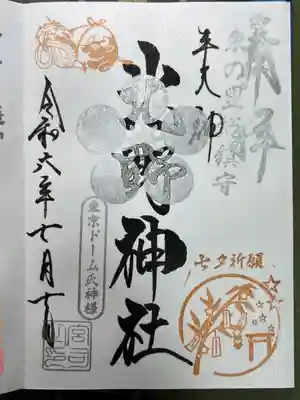 奉拝
東の里総鎮守
牛天神
北野神社
東京ドーム氏神様
七夕祈願
令和六年七月七日